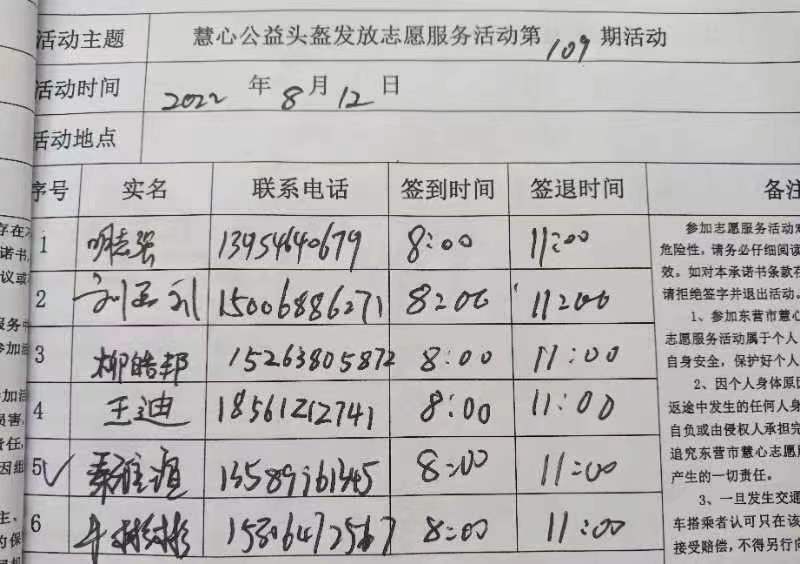 活动主题 慧心公益头盔发放志愿服务活动第109期活动
活动时间 2022年8月12日
活动地点
序号 实名 联系电话 签到时间 签退时间 备注
1 明志强 13954640679 8:00 11:00
2 15006886271 8:00 11:00
3 柳皓邦 15263805872 8:00 11:00
4 王迪 18561212741 8:00 11:00
5✓ 秦雅谊 13589961345 8:00 11:00
6 牛彬彬 15806472567 8:00 11:00
参加志愿服务活动
危险性,请务必仔细阅读
效。如对本承诺书条款存
请拒绝签字并退出活动。
1、参加东营市慧心
志愿服务活动属于个人
自身安全,保护好个人
2、因个人身体原因
返途中发生的任何人身
自负或由侵权人承担完
追究东营市慧心志愿服
产生的一切责任。
3、一旦发生交通
车搭乘者认可只在该
接受赔偿,不得另行向